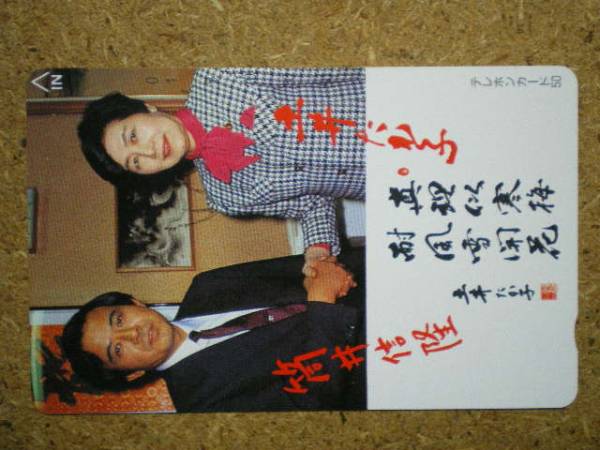 IN
テレホンカード50
土井たか子
筒井信隆
眞理似寒梅
耐風雪開花
土井たか子